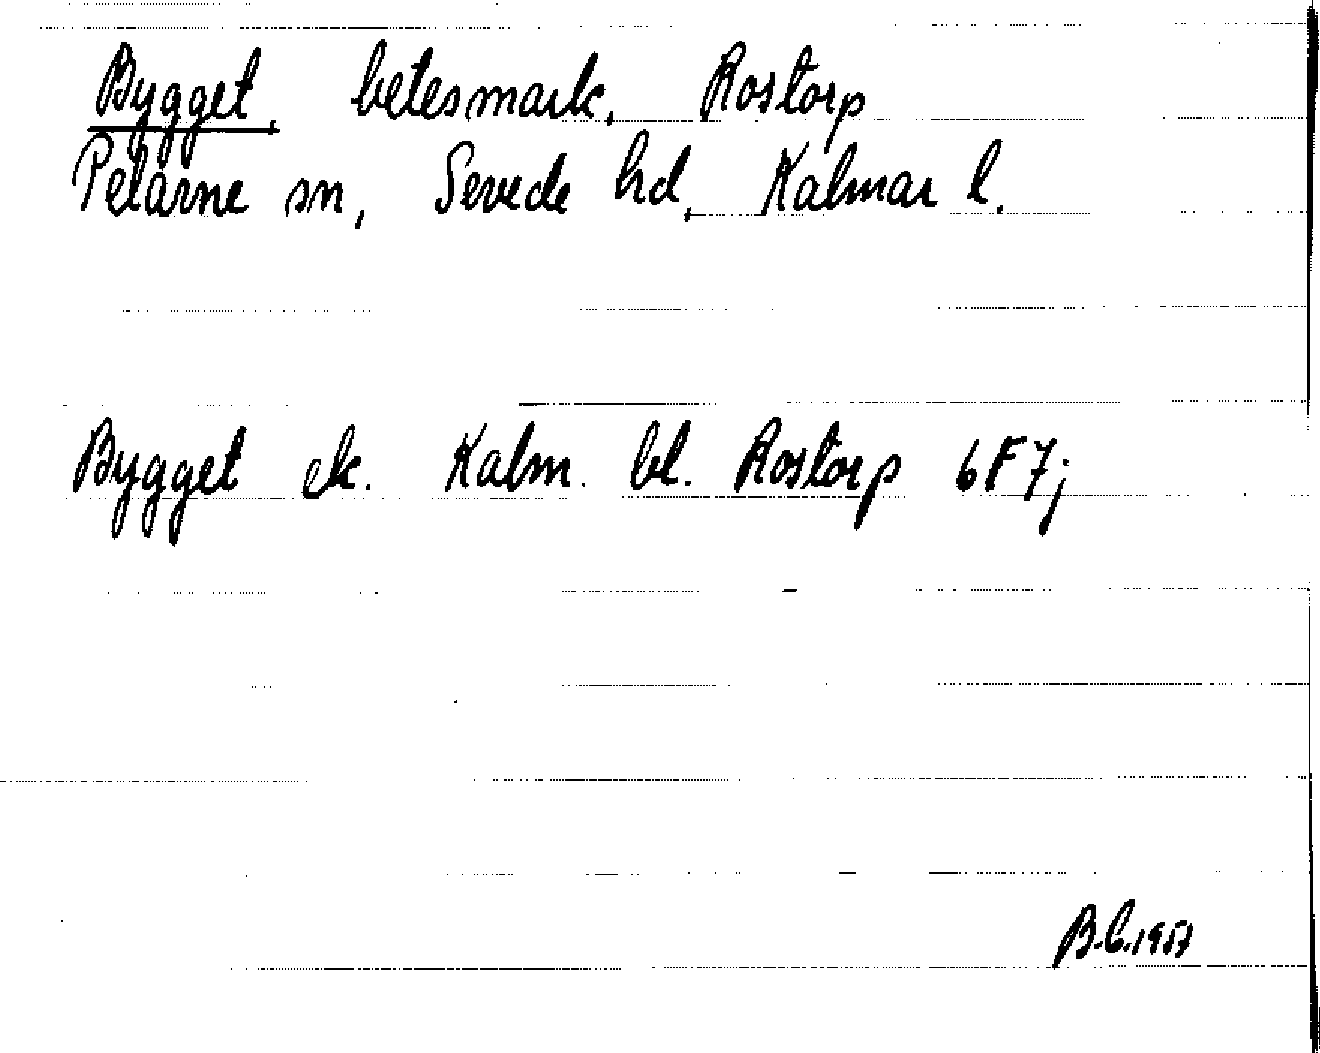 Bygget, betesmark, Rostorp
Pelarne sn, Sevede hd, Kalmar l.
Bygget ek. Kalm. bl. Rostorp 6F7j